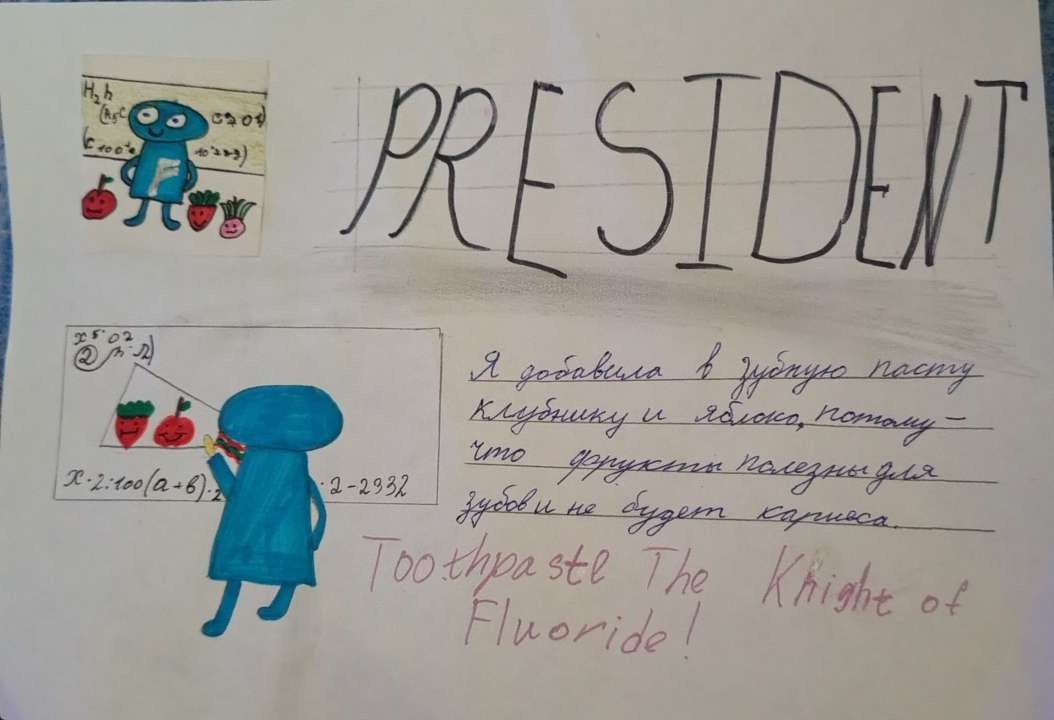 H₂h
C704)
F
PRESIDENT
x⁵·02
②
x·2:100(a+в)·2 ·2-2932
Я добавила в зубную пасту
клубнику и яблоко, потому-
что фрукты полезны для
зубов и не будет кариеса.
Toothpaste The Knight of
Fluoride!